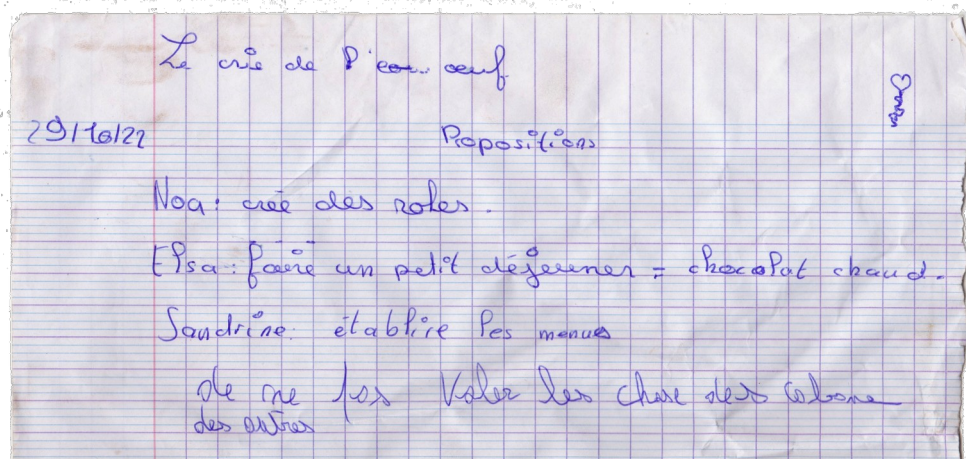 Le crie de l' œuf
29/10/22
Propositions
Noa : crée des roles .
Elsa : faire un petit déjeuner = chocolat chaud .
Sandrine : établire les menus
de ne pas voler les chose des cabane
des autres